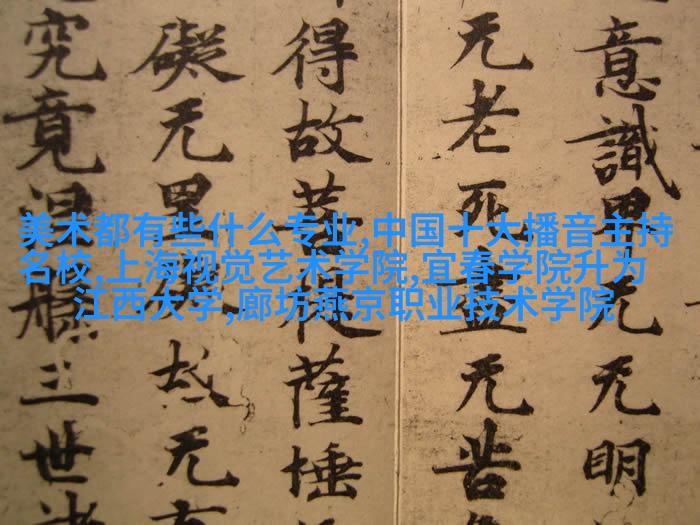 美术都有些什么专业,中国十大播音主持
名校,上海视觉艺术学院,宜春学院升为
江西大学,廊坊燕京职业技术学院
意識界无无明
无老死盡无苦
得故菩提薩埵
礙无罣礙故无有
究竟涅槃三世諸